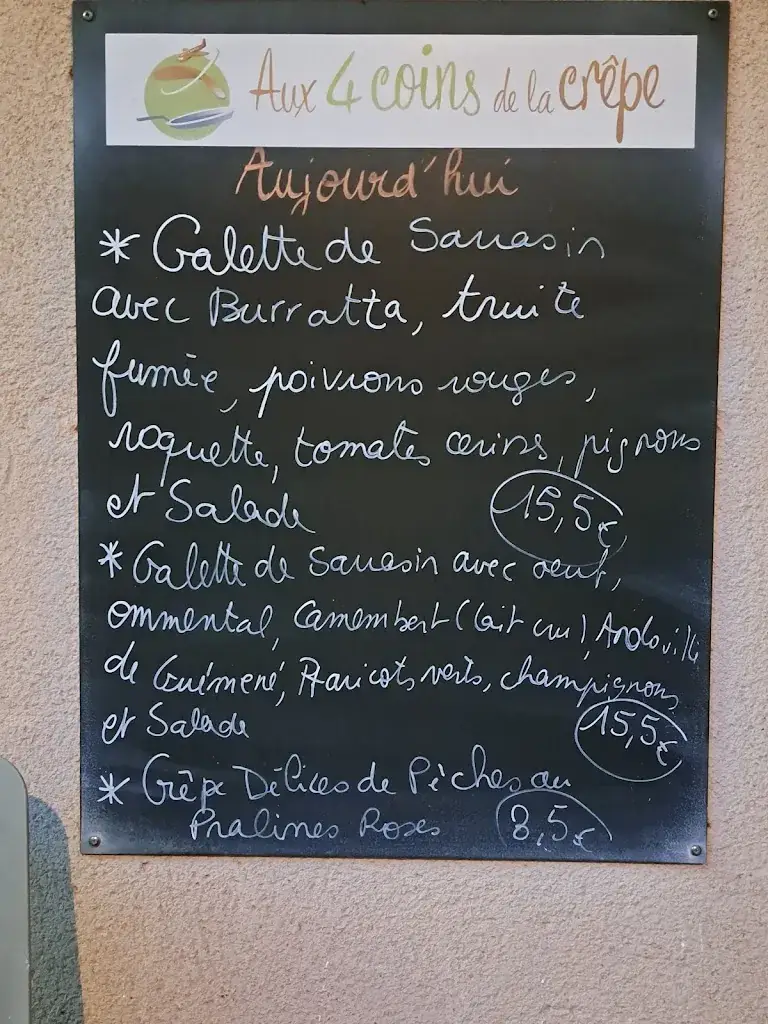 Aux 4 coins de la crêpe
Aujourd'hui
* Galette de Sarrasin
avec Burratta, truite
fumée, poivrons rouges,
roquette, tomates cerises, pignons
et Salade 15,5€
* Galette de Sarrasin avec oeuf,
emmental, Camembert (lait cru), Andouille
de Guémené, Haricots verts, champignons
et Salade 15,5€
* Crêpe Délices de Pêches au
Pralines Roses 8,5€